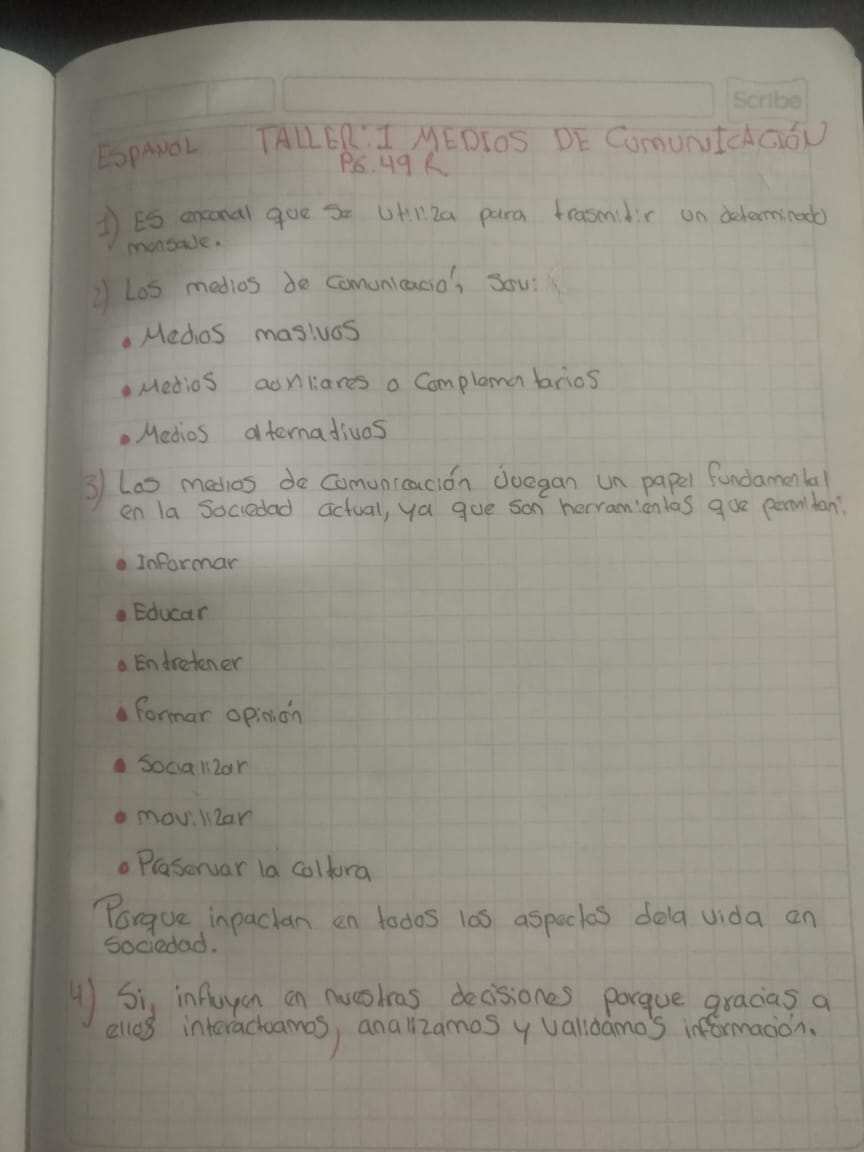 Scribe
ESPAÑOL TALLER: I MEDIOS DE COMUNICACIÓN
PG. 49 R
1) ES encanal que se utiliza para trasmitir un determinado
mensaje.
2) Los medios de comunicación, son:
• Medios masivos
• Medios auxliares o complementarios
• Medios alternativos
3) Los medios de comunicación juegan un papel fundamental
en la sociedad actual, ya que son herramientas que permitan:
• Informar
• Educar
• Entretener
• formar opinión
• Socializar
• movilizar
• Preservar la coltura
Porque inpactan en todos los aspectos dela vida en
sociedad.
4) Si, influyen en nuestras decisiones porque gracias a
ellos interactuamos, analizamos y validamos información.